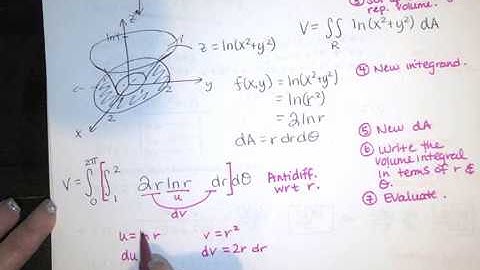 rep. volume.
V = ∬ ln(x²+y²) dA
R
z
ln4
z = ln(x²+y²)
y
x
2
2
f(x,y) = ln(x²+y²)
= ln(r²)
= 2lnr
dA = r dr dθ
④ New integrand.
⑤ New dA
⑥ Write the
volume integral
in terms of r &
θ.
⑦ Evaluate.
V = ∫₀^2π [∫₁² 2r ln r dr] dθ
u
dv
Antidiff.
wrt r.
v = r²
du
dv = 2r dr